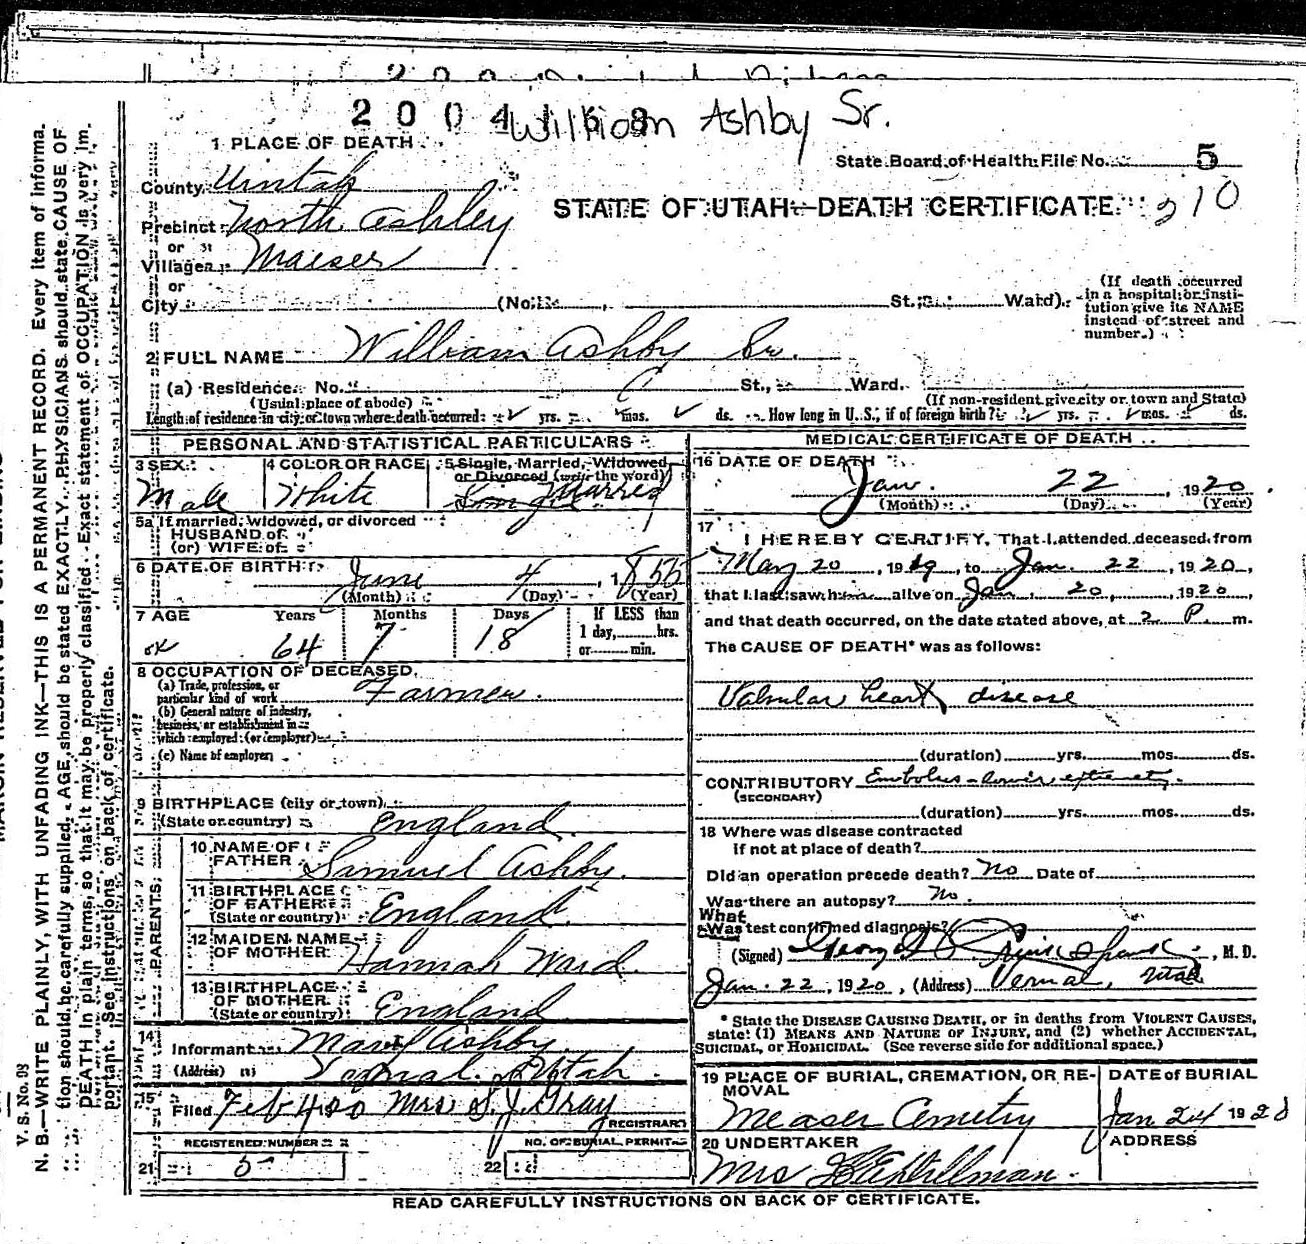 200416
William Ashby Sr.
1 PLACE OF DEATH
State Board of Health File No. 5
210
County Uintah
STATE OF UTAH—DEATH CERTIFICATE
Precinct North Ashley
or
Village Maeser
or
City (No. , St., Ward)
(If death occurred in a hospital or insti-
tution give its NAME
instead of street and
number.)
2 FULL NAME William Ashby Sr.
(a) Residence. No. St., Ward.
(Usual place of abode) (If non-resident give city or town and State)
Length of residence in city or town where death occurred: yrs. mos. ds. How long in U.S., if of foreign birth? yrs. mos. ds.
PERSONAL AND STATISTICAL PARTICULARS
3 SEX
Male
4 COLOR OR RACE
White
5 Single, Married, Widowed
or Divorced (write the word)
Single Married
5a If married, widowed, or divorced
HUSBAND of
(or) WIFE of
6 DATE OF BIRTH
June 4, 1855
(Month) (Day) (Year)
7 AGE Years Months Days If LESS than
1 day, hrs.
or min.
64 7 18
8 OCCUPATION OF DECEASED
(a) Trade, profession, or
particular kind of work Farmer.
(b) General nature of industry,
business, or establishment in
which employed (or employer)
(c) Name of employer
9 BIRTHPLACE (city or town)
(State or country) England
PARENTS
10 NAME OF
FATHER Samuel Ashby.
11 BIRTHPLACE
OF FATHER
(State or country) England
12 MAIDEN NAME
OF MOTHER Hannah Ward
13 BIRTHPLACE
OF MOTHER
(State or country) England
14
Informant Ashby
(Address) Vernal. Utah.
15
Filed Feb 4 20 Mrs S. J. Gray
REGISTRAR
REGISTERED NUMBER NO. OF BURIAL PERMIT
21 5 22
MEDICAL CERTIFICATE OF DEATH
16 DATE OF DEATH
Jan. 22, 1920.
(Month) (Day) (Year)
17
I HEREBY CERTIFY, That I attended deceased from
May 20, 1919, to Jan. 22, 1920,
that I last saw him alive on Jan. 20, 1920,
and that death occurred, on the date stated above, at 2 P. m.
The CAUSE OF DEATH* was as follows:
Valvular heart disease
(duration) yrs. mos. ds.
CONTRIBUTORY Embolus - lower extremity.
(SECONDARY)
(duration) yrs. mos. ds.
18 Where was disease contracted
if not at place of death?
Did an operation precede death? No Date of
Was there an autopsy? No.
What
Was test confirmed diagnosis?
(Signed) , M. D.
Jan. 22, 1920, (Address) Vernal, Utah
* State the DISEASE CAUSING DEATH, or in deaths from VIOLENT CAUSES,
state: (1) MEANS AND NATURE OF INJURY, and (2) whether ACCIDENTAL,
SUICIDAL, or HOMICIDAL. (See reverse side for additional space.)
19 PLACE OF BURIAL, CREMATION, OR RE-
MOVAL
Measer Cemetry
DATE of BURIAL
Jan 24 1920
20 UNDERTAKER
Mrs
ADDRESS
READ CAREFULLY INSTRUCTIONS ON BACK OF CERTIFICATE.
V. S. No. 98
N. B.—WRITE PLAINLY, WITH UNFADING INK—THIS IS A PERMANENT RECORD. Every item of informa-
tion should be carefully supplied. AGE should be stated EXACTLY. PHYSICIANS should state CAUSE OF
DEATH in plain terms, so that it may be properly classified. Exact statement of OCCUPATION is very im-
portant. See instructions on back of certificate.